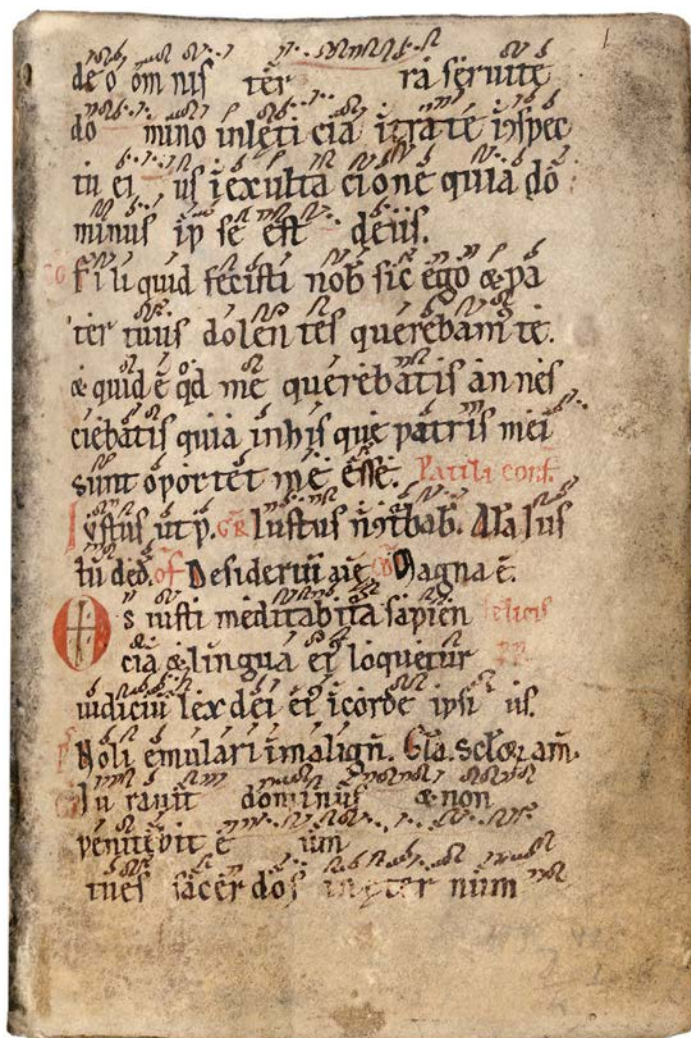 deo om nis ter ra seruite
do mino inleticia ĩtrate inspec
tu ei us ĩexulta cione quia do
minus ip se est deus.
co Fili quid fecisti nob sic ego & pa
ter tuus dolen tes querebam te.
& quid ẽ qd me querebatis an nes
ciebatis quia inhis que patris mei
sunt oportet me esse. Pauli conf.
Iustus ut p. GR Iustus
tu ded. of Desideriũ aĩe co Magna ẽ.
Os iusti meditabitur sapien felicis
cia & lingua ei loquetur
iudiciũ lex dei ei ĩcorde ipsi us.
ps Noli emulari ĩmalign. Gła. sclor. am.
Iu rauit dominus & non
penitebit e um
tu es sacer dos in eter num